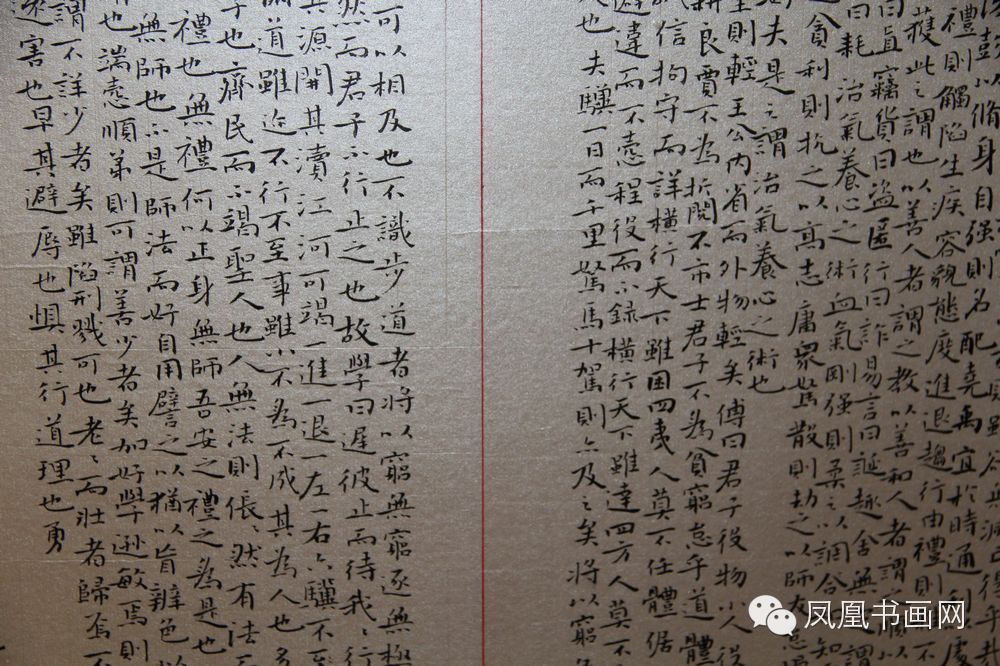 彭以脩身自强則名配堯禹宜於時通利以處
禮則觸陷生疾容貌態度進退趨行由禮則
獲此之謂也以善人者謂之教以善和人者謂
曰直竊貨曰盜匿行曰詐易言曰誕趣舍無
曰耗治氣養心之術血氣剛强則柔之以調合知
之貪利則抗之以高志庸衆駑散則劫之以師友怠
夫是之謂治氣養心之術也
至則輕王公內省而外物輕矣傳曰君子役物小人役
耕良賈不為折閱不市士君子不為貧窮怠乎道體
信拘守而詳橫行天下雖困四夷人莫不任體倨
僻違而不愨程役而不録橫行天下雖達四方人莫不
也夫驥一日而千里駑馬十駕則亦及之矣將以窮
可以相及也不識步道者將以窮無窮逐無極
然而君子不行止之也故學曰遲彼止而待我〻行
其源開其瀆江河可竭一進一退一左一右六驥不至
道雖迩不行不至事雖小不為不成其為人也多
子也齊民而不竭聖人也人無法則倀〻然有法
禮也無禮何以正身無師吾安之禮之為是也
無師也不是師法而好自用譬之以猶以盲辨色以
也端愨順弟則可謂善少者矣加好學遜敏焉則
謂不詳少者矣雖陷刑戮可也老〻而壯者歸焉不
遠害也早其避辱也惧其行道理也勇
凤凰书画网